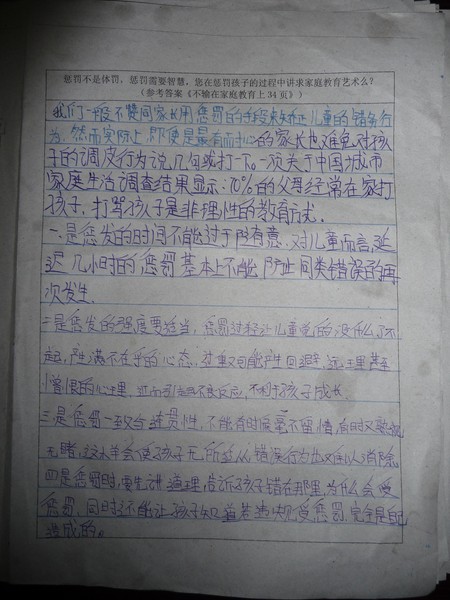 惩罚不是体罚，惩罚需要智慧，您在惩罚孩子的过程中讲求家庭教育艺术么？
（参考答案《不输在家庭教育上34页》）
我们一般不赞同家长用惩罚的手段来矫正儿童的错务行
为，然而实际上，即使是最有耐心的家长也难免对孩
子的调皮行为说几句或打一下。一项关于中国城市
家庭生活调查结果显示：70%的父母经常在家打
孩子，打骂孩子是非理性的教育方式。
一、是惩发的时间不能过于随意，对儿童而言，延
迟几小时的惩罚基本上不能阻止同类错误的再
次发生。
二是惩发的强度要适当，惩罚过轻让儿童觉的没什么了不
起，产生满不在乎的心态，过重又可能产生回避、远理甚至
憎恨的心理，不良反应，不利于孩子成长。
三是惩罚一致符合连贯性，不能有时候毫不留情，有时又熟视
无睹，这样会使孩子无所适从，错误行为也难以消除
四是惩罚时，要先讲道理，告诉孩子错在那里，为什么会受
惩罚，同时还能让孩子知道受惩罚，完全是自己
造成的。